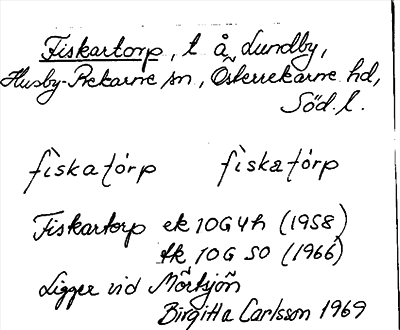 Fiskartorp, t å Lundby,
Husby-Rekarne sn, Österrekarne hd,
Söd. l.
fìskatórp fìskatórp
Fiskartorp ek 10G4h (1958)
tk 10G SO (1966)
Ligger vid Mörtsjön
Birgitta Carlsson 1969